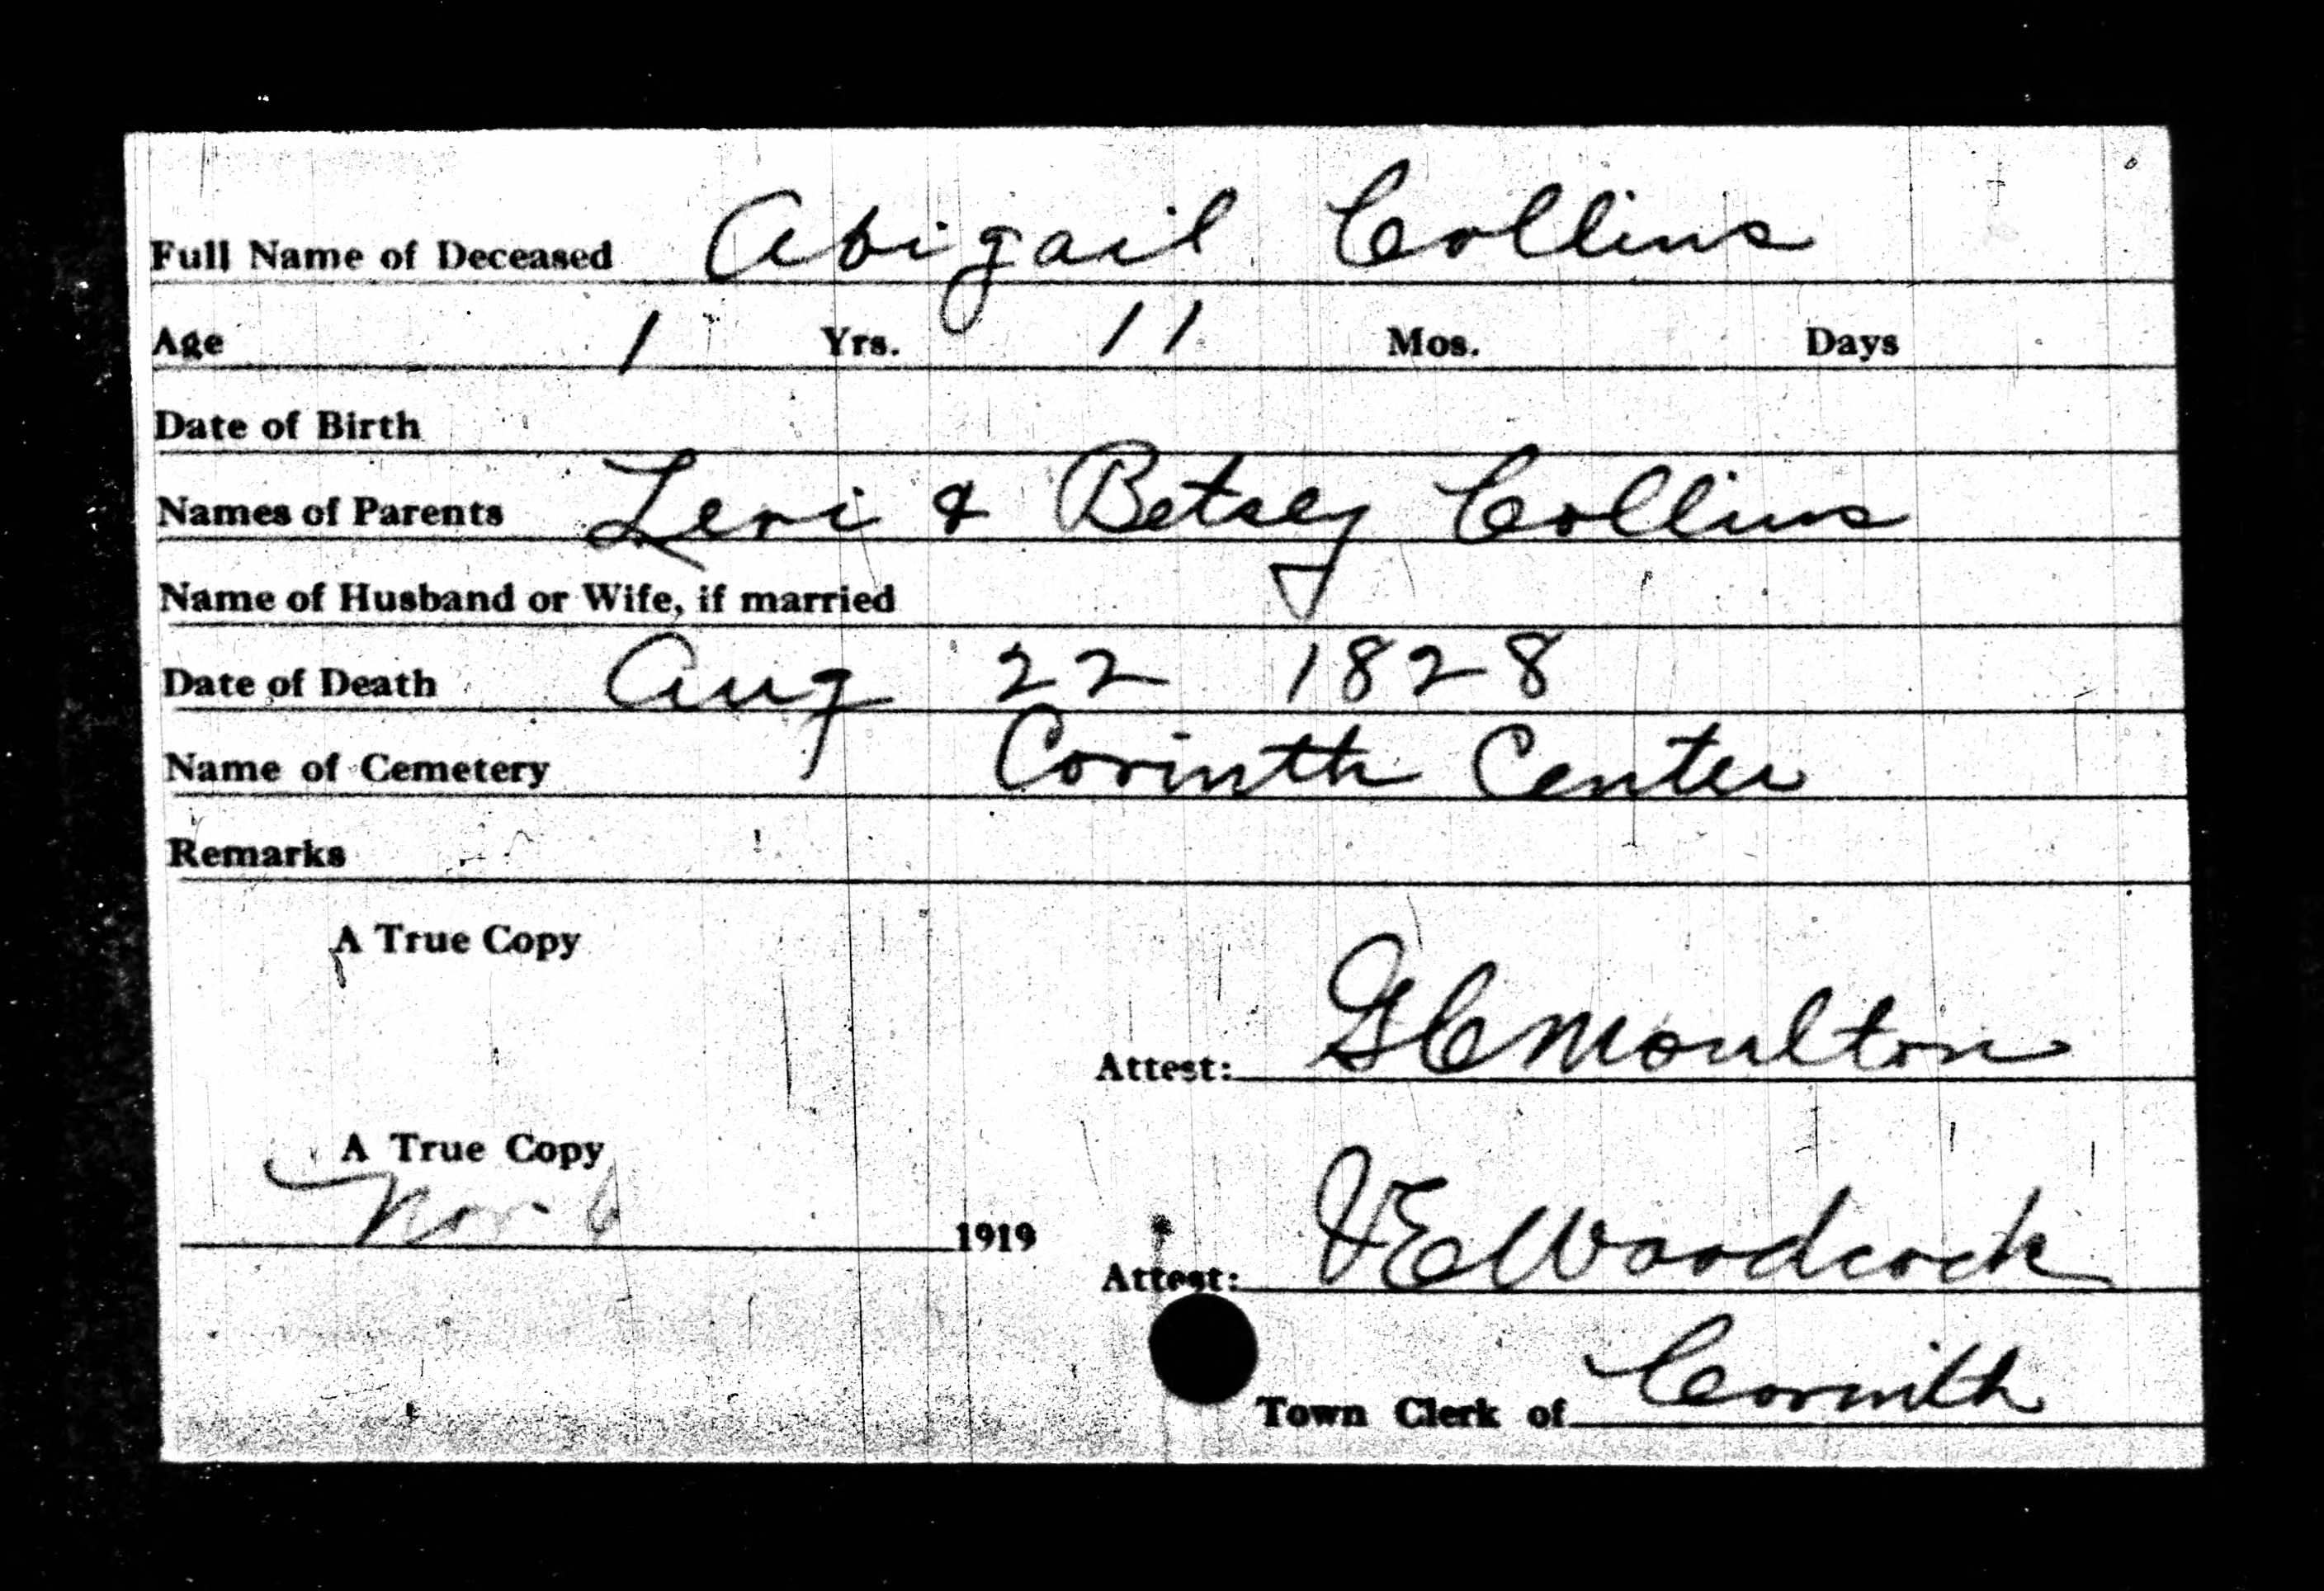 Full Name of Deceased Abigail Collins
Age 1 Yrs. 11 Mos. Days
Date of Birth
Names of Parents Levi & Betsey Collins
Name of Husband or Wife, if married
Date of Death Aug 22 1828
Name of Cemetery Corinth Center
Remarks
A True Copy
Attest: G C Moulton
A True Copy
Nov. 6 1919
Attest: V E Woodcock
Town Clerk of Corinth